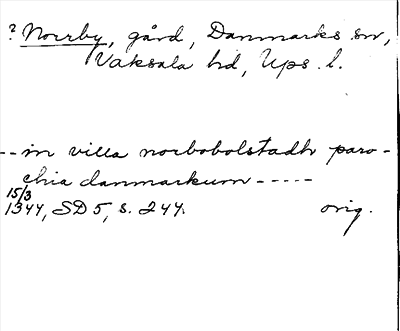 ? Norrby, gård, Danmarks sn,
Vaksala hd, Ups. l.
-- in villa norbobolstadh paro-
chia danmarkum -----
15/3
1344, SD 5, s. 244. orig.